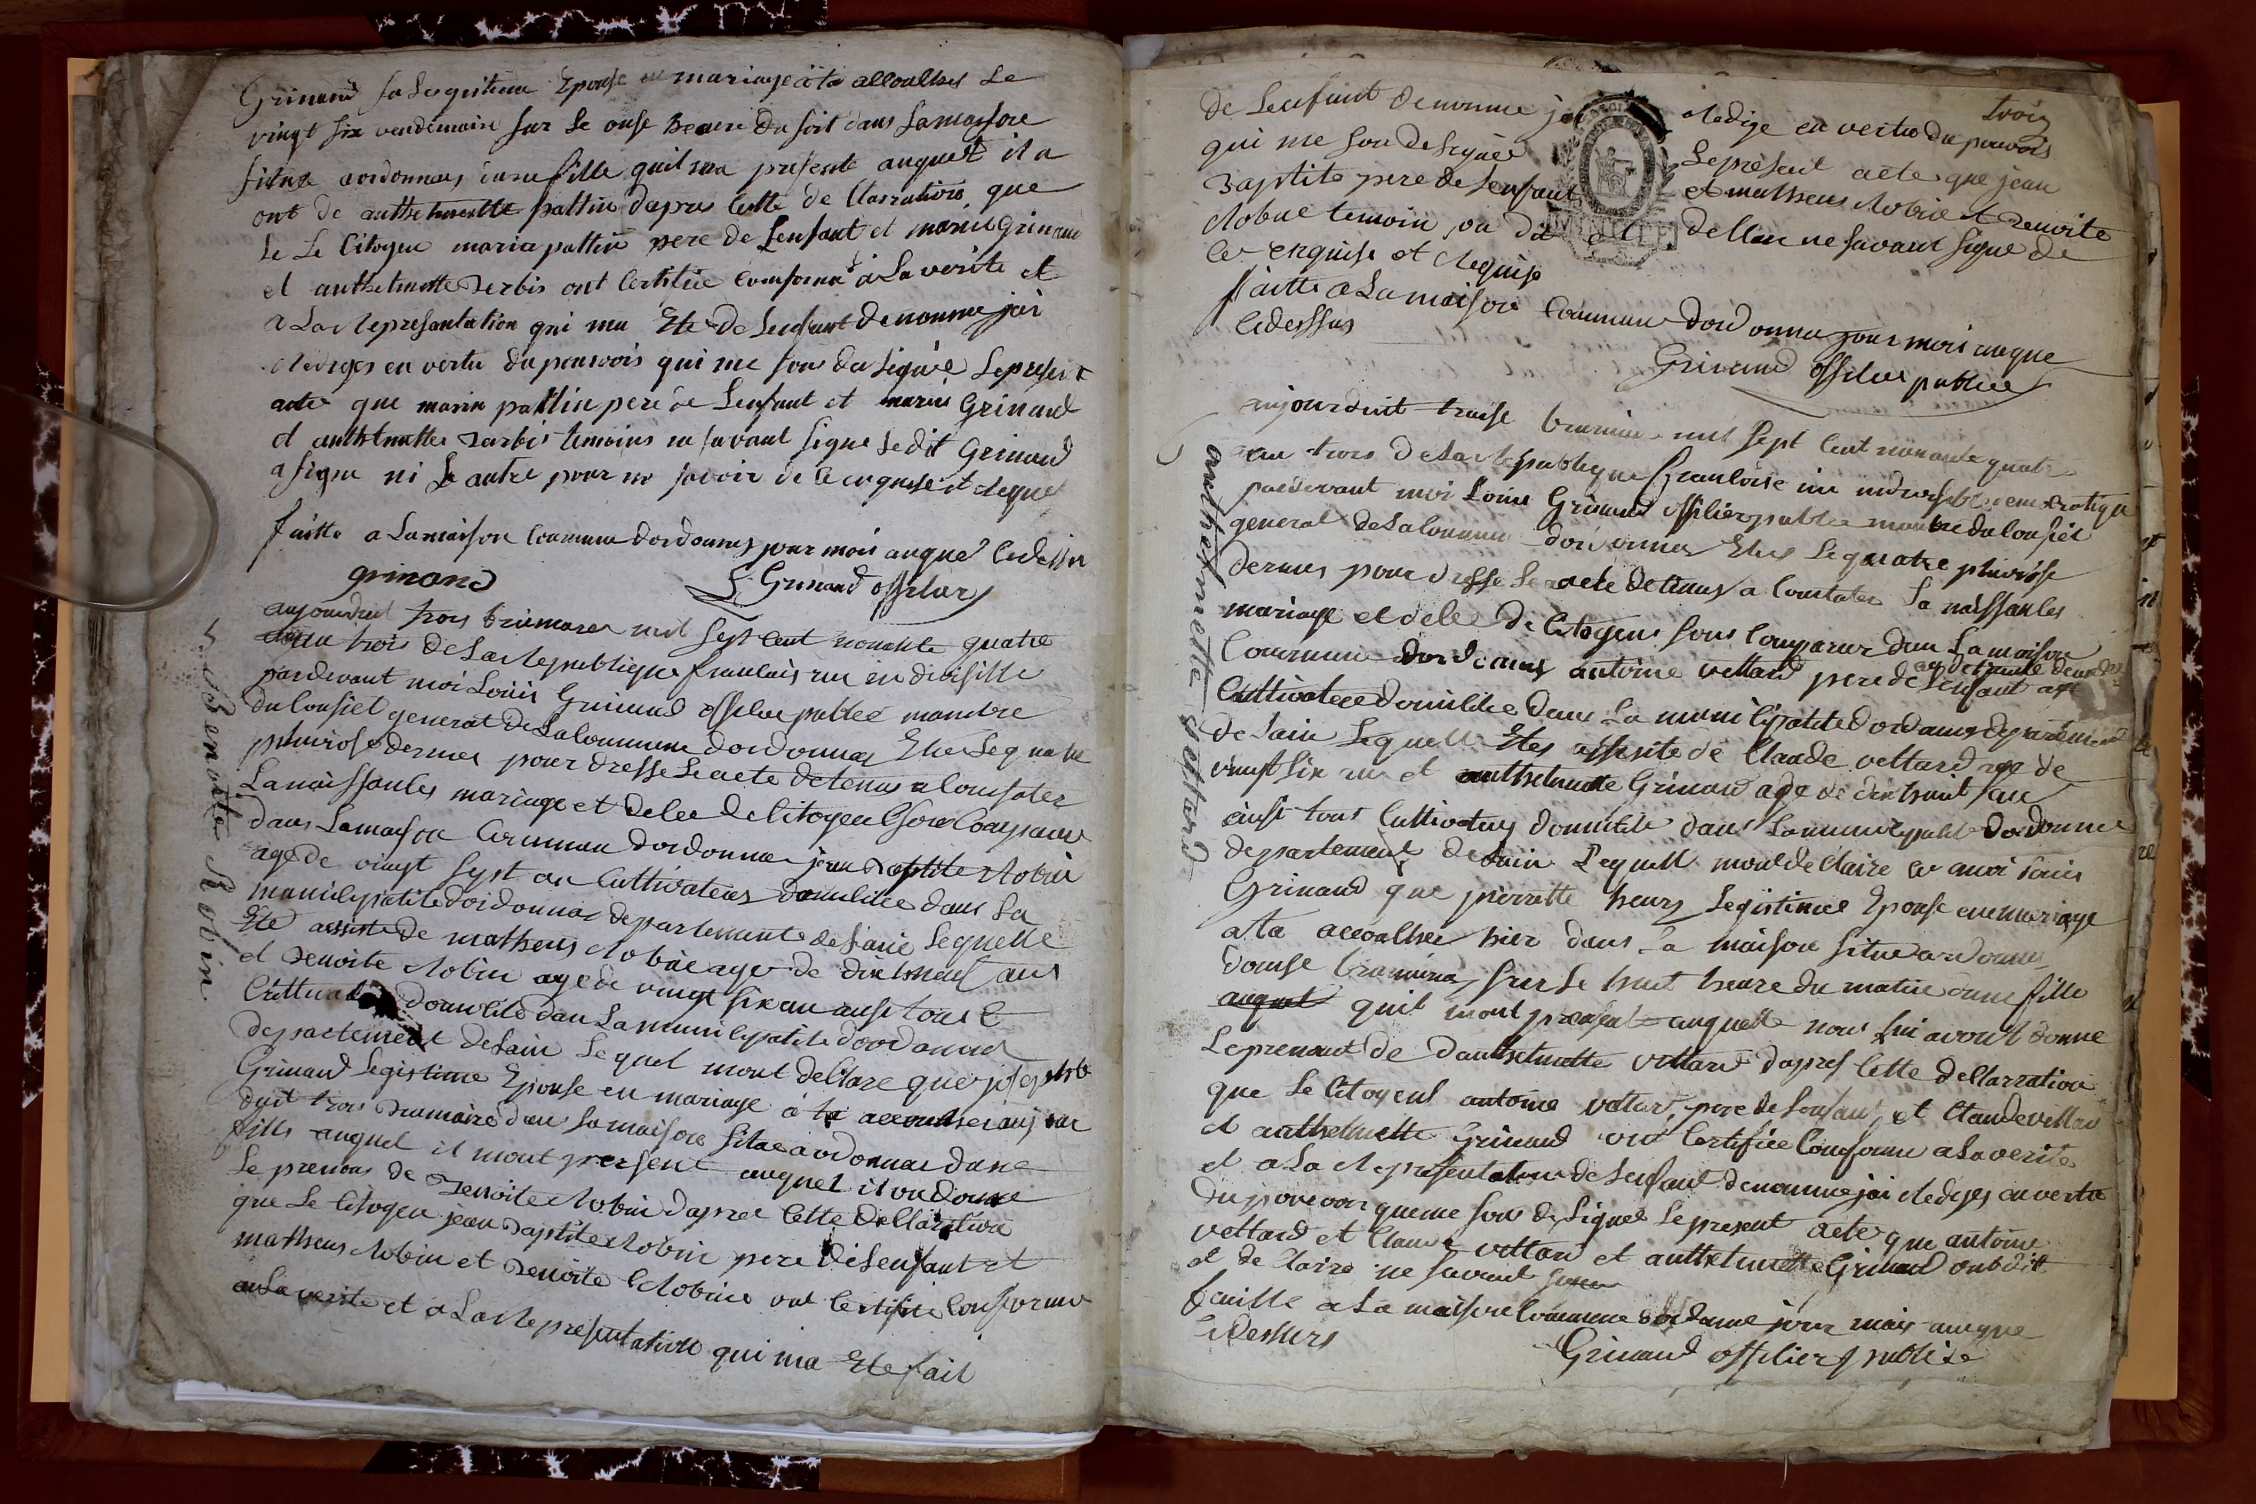 Grinand sa Legistime Epouse en mariage a eta accoulhes Le
vingt six vendemair sur Le onse heure du soit dans La maison
situe aordonnas dune fille quil ma presente auquel il a
ont de anthelmette pattin dapres cette de Clarration que
Le Le Citoyen marin pattin pere de Lenfant et marie Grinand
et anthelmette Derbis ont Certifiee Comforme a La verite et
a La Representation qui ma Ete de Lenfant denomme jai
Rediges en vertu du pouvois qui me sou du signé Le present
acte que marin pattin pere de Lenfant et marie Grinand
et anthelmette Darbis temoins ne savant signe Ledit Grinand
a signe ni Le autre pour ne savoir de Ce enquise et Requis
faitte a La maison Commune dordonnas jour mois anque Cidessu
grinand
L. Grinand offciar
aujourduit trois brumaire mil sept cent nonante quatre
trois de La Republique francais une in divisible
pardevant moi Louis Grinand officie public manbre
du Consiel general de La Commune dordonnas Elue Le quatre
pluviose dernier pour dresse Le acte detenus a Constater
La naissantes mariage et delee de Citoyen sou Comparu
dans La maison Commune dordonnas jean Baptiste Robin
age de vingt sept an Cultivateur domicilie dans La
manicipatite dordonnas departement de Lain Lequelle
Ete assiste de matheus Robin age de dix neuf ans
et Benoite Robin age de vingt six an ausi tous
Cultivat domicilie dan La municipatite dordonnas
departement de Lain Lequel mont declare que josephte
Grinand Legistime Epouse en mariage a ta accoulhe aujour
duit trois Brumaire dan La maison situe aordonnas dune
fille auquel il mont present auquel il on donne
Le prenons de Benoite Robin dapres Cette declaration
que Le Citoyen jean Baptiste Robin pere de Lenfant et
matheus Robin et Benoite Robin ont Certifie Conforme
a La verite et a La Representation qui ma Ete fait
Benoite Robin
trois
de Lenfant denomme jai Redige en vertu du pouvois
qui me sou de signer Le present acte que jean
Baptiste pere de Lenfant et matheus Robin et Benoite
Robin temoin on dit et dellan ne savant signe de
Ce enquise et Requise
faitte a La maison Commune dordonnas jour mois anque
Cidessus
Grinand officie public
aujourduit traise brumaire mil sept Cent nonante quatre
an trois de La Republique francoise une indivisible democratique
pardevant moi Louis Grinand officier public manbre du Consiel
general de La Commune dordonnas Elus Le quatre pluviose
dernier pour dresse Le acte detenus a Constater La naissantes
mariage et delee de Citoyens sous Comparus dan La maison
Commune dordonnas antoine vettard pere de Lenfant age
Cultivateur domicilie dans La municipatite dordonnas departement
de Lain Lequelle Etes assiste de Claude vettard age de
vinst six an et anthelmette Grinand age de dix huit an
ausi tous Cultivateurs domicilie dans La municipalite dordonnas
departement de Lain Lequell mont declaire a moi Louis
Grinand que pierrette henry Legistimee Epouse en mariage
a ta accoulhee hier dans La maison situe aordonnas
douse brumaire sur Le huit heure du matin dune fille
auquel quil mont present auquelle nous lui avont donne
Le prenont de danthelmette vettard dapres Cette dellarration
que Le Citoyens antoine vettard pere de Lenfant et Claude vettard
et anthelmette Grinand ont Certifiee Conforme a La verite
et a La Representation de Lenfant denomme jai Rediges en vertu
du pouvoir que me sou de signes Le present acte que antoine
vettard et Claude vettard et anthelmette Grinand ont dit
et de Claire ne savant
faitte a La maison Commune dordonnas jour mois anque
Cidessus
Grinand officier public
anthelmette vettard